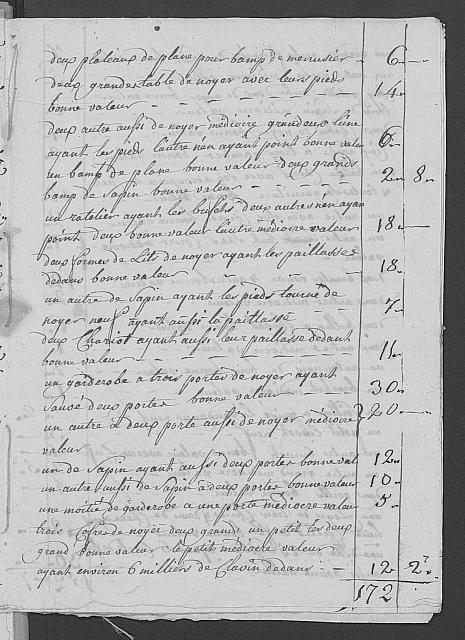 deux plateaux de plane pour bamp de menusier - 6 -
deux grandes table de noyer avec leurs pieds
bonne valeur - - - - - 14 -
deux autre aussi de noyer médiocre grandeur lune
ayant les pieds lautre nen ayant point bonne valeur 6 -
un bamp de plane bonne valeur deux grands
bamp de sapin bonne valeur - - - - 2 - 8 -
un ratelier ayant les deux autres nen ayan
point deux bonne valeur lautre médiocre valeur 18 -
deux formes de Lit de noyer ayant les paillasses
dedans bonne valeur - - - - 18 -
un autre de sapin ayant les pieds tourné de
noyer neuf ayant aussi la paillasse - 7 -
deux Chariot ayant aussi leur paillasse dedant
bonne valeur - - - - 11 -
un garderobe a trois portes de noyer ayant
deux portes bonne valeur - - 30 -
un autre a deux porte aussi de noyer médiocre 20 -
valeur
un de sapin ayant aussi deux portes bonne val 12 -
un autre aussi de sapin à deux portes bonne valeur 10 -
une moitié de garderobe a une porte médiocre valeur 5 -
trois Cofres de noyer deux grands un petit les deux
grand bonne valeur le petit médiocre valeur
ayant environ 6 milliers de Clavin dedans - 12 - 2
172